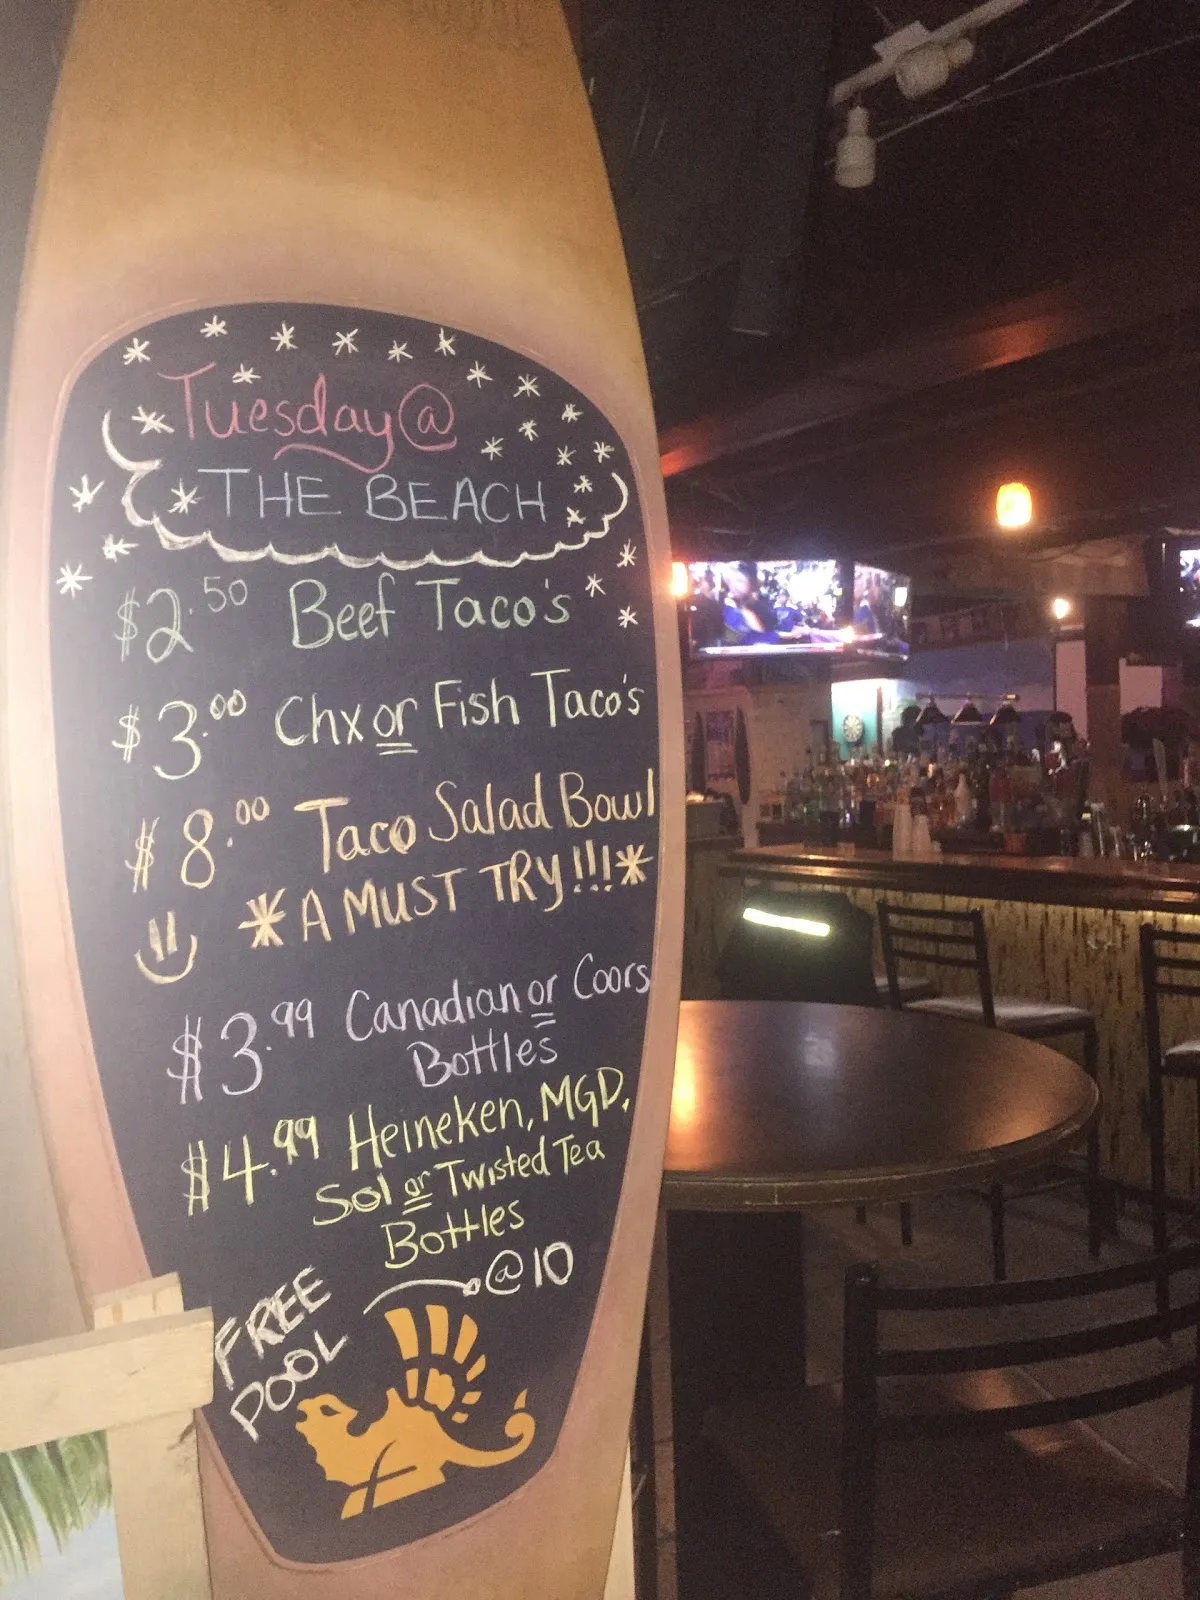 Tuesday @
THE BEACH
$2.50 Beef Taco's
$3.00 Chx or Fish Taco's
$8.00 Taco Salad Bowl
*A MUST TRY!!!*
$3.99 Canadian or Coors
Bottles
$4.99 Heineken, MGD,
Sol or Twisted Tea
Bottles
FREE
POOL
@10